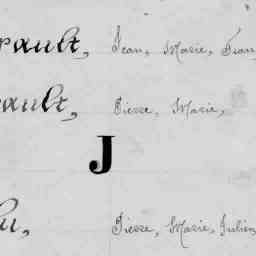 rault, Jean, Marie, Fran
ault, Pierre, Marie,
J
u, Pierre, Marie, Julien